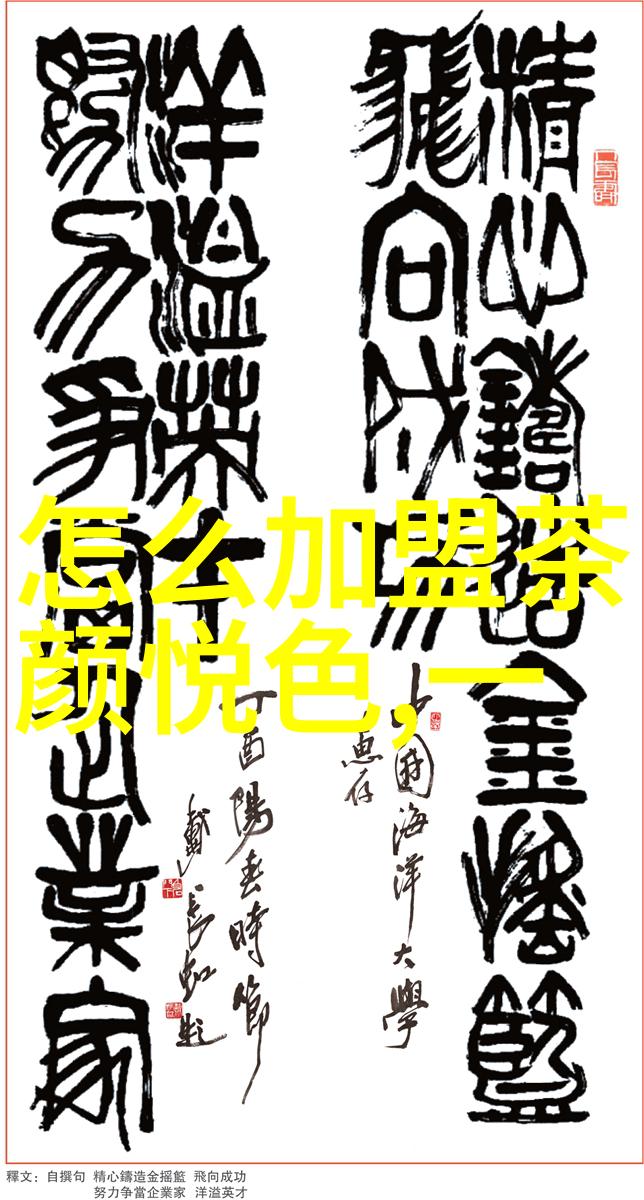 精心鑄造金摇籃
飛向成功
中國海洋大學
惠存
努力争當企業家
洋溢英才
丁酉陽春時節
戴長虹題
怎么加盟茶
颜悦色,一
釋文：自撰句 精心鑄造金摇籃 飛向成功
努力争當企業家 洋溢英才